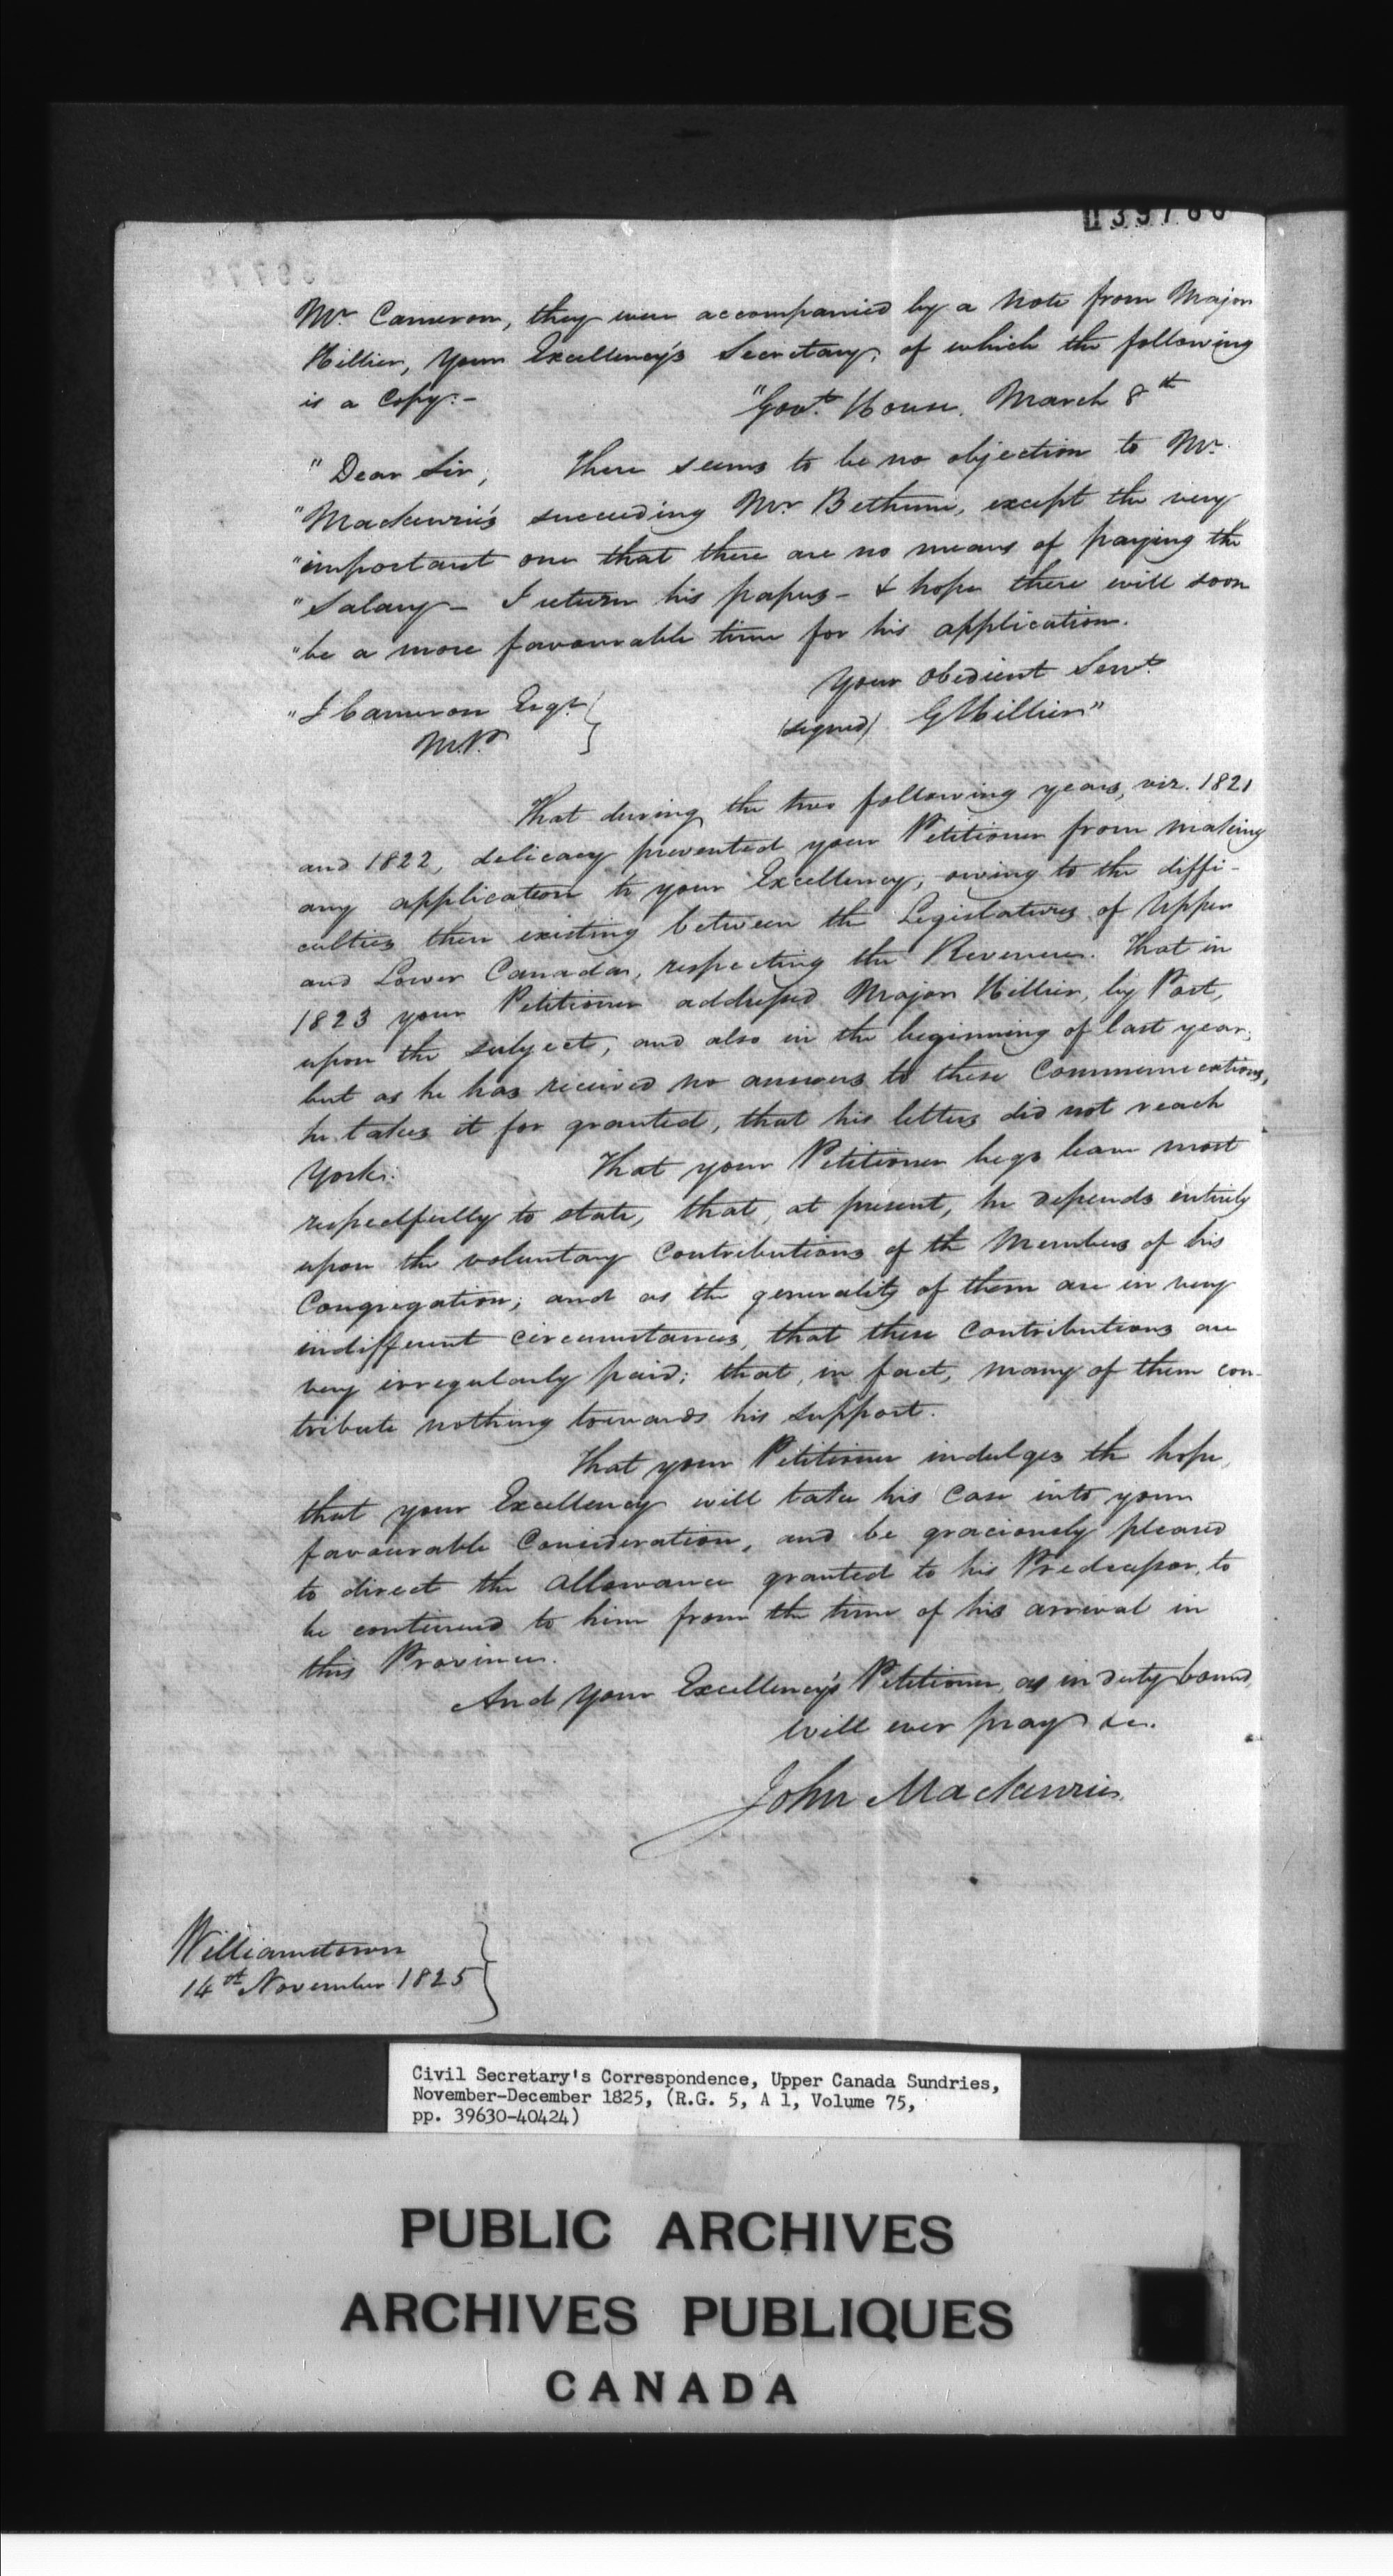 Mr. Cameron, they were accompanied by a note from Major
Hillier, your Excellency's Secretary, of which the following
is a Copy:-
"Govt. House, March 8th
"Dear Sir, There seems to be no objection to Mr.
"Mackenzie's succeeding Mr Bethune, except the very
"important one that there are no means of paying the
"Salary - I return his papers - & hope there will soon
"be a more favourable time for his application.
Your Obedient Servt.
(signed) G Hillier"
"J Cameron Esqr.
M.P.
That during the two following years, viz. 1821
and 1822, delicacy prevented your Petitioner from making
any application to your Excellency, owing to the diffi-
culties then existing between the Legislatures of Upper
and Lower Canada, respecting the Revenue. That in
1823 your Petitioner addressed Major Hillier, by Post,
upon the subject, and also in the beginning of last year;
but as he has received no answers to these Communications,
he takes it for granted, that his letters did not reach
York.
That your Petitioner begs leave most
respectfully to state, that, at present, he depends entirely
upon the voluntary Contributions of the Members of his
Congregation; and as the generality of them are in very
indifferent circumstances, that these Contributions are
very irregularly paid; that, in fact, many of them con-
tribute nothing towards his support.
That your Petitioner indulges the hope,
that your Excellency will take his Case into your
favourable Consideration, and be graciously pleased
to direct the allowance granted to his Predecessor, to
be continued to him from the time of his arrival in
this Province.
And your Excellency's Petitioner, as in duty bound,
will ever pray &c.
John Mackenzie
Williamstown
14th November 1825
Civil Secretary's Correspondence, Upper Canada Sundries,
November-December 1825, (R.G. 5, A 1, Volume 75,
pp. 39630-40424)
PUBLIC ARCHIVES
ARCHIVES PUBLIQUES
CANADA